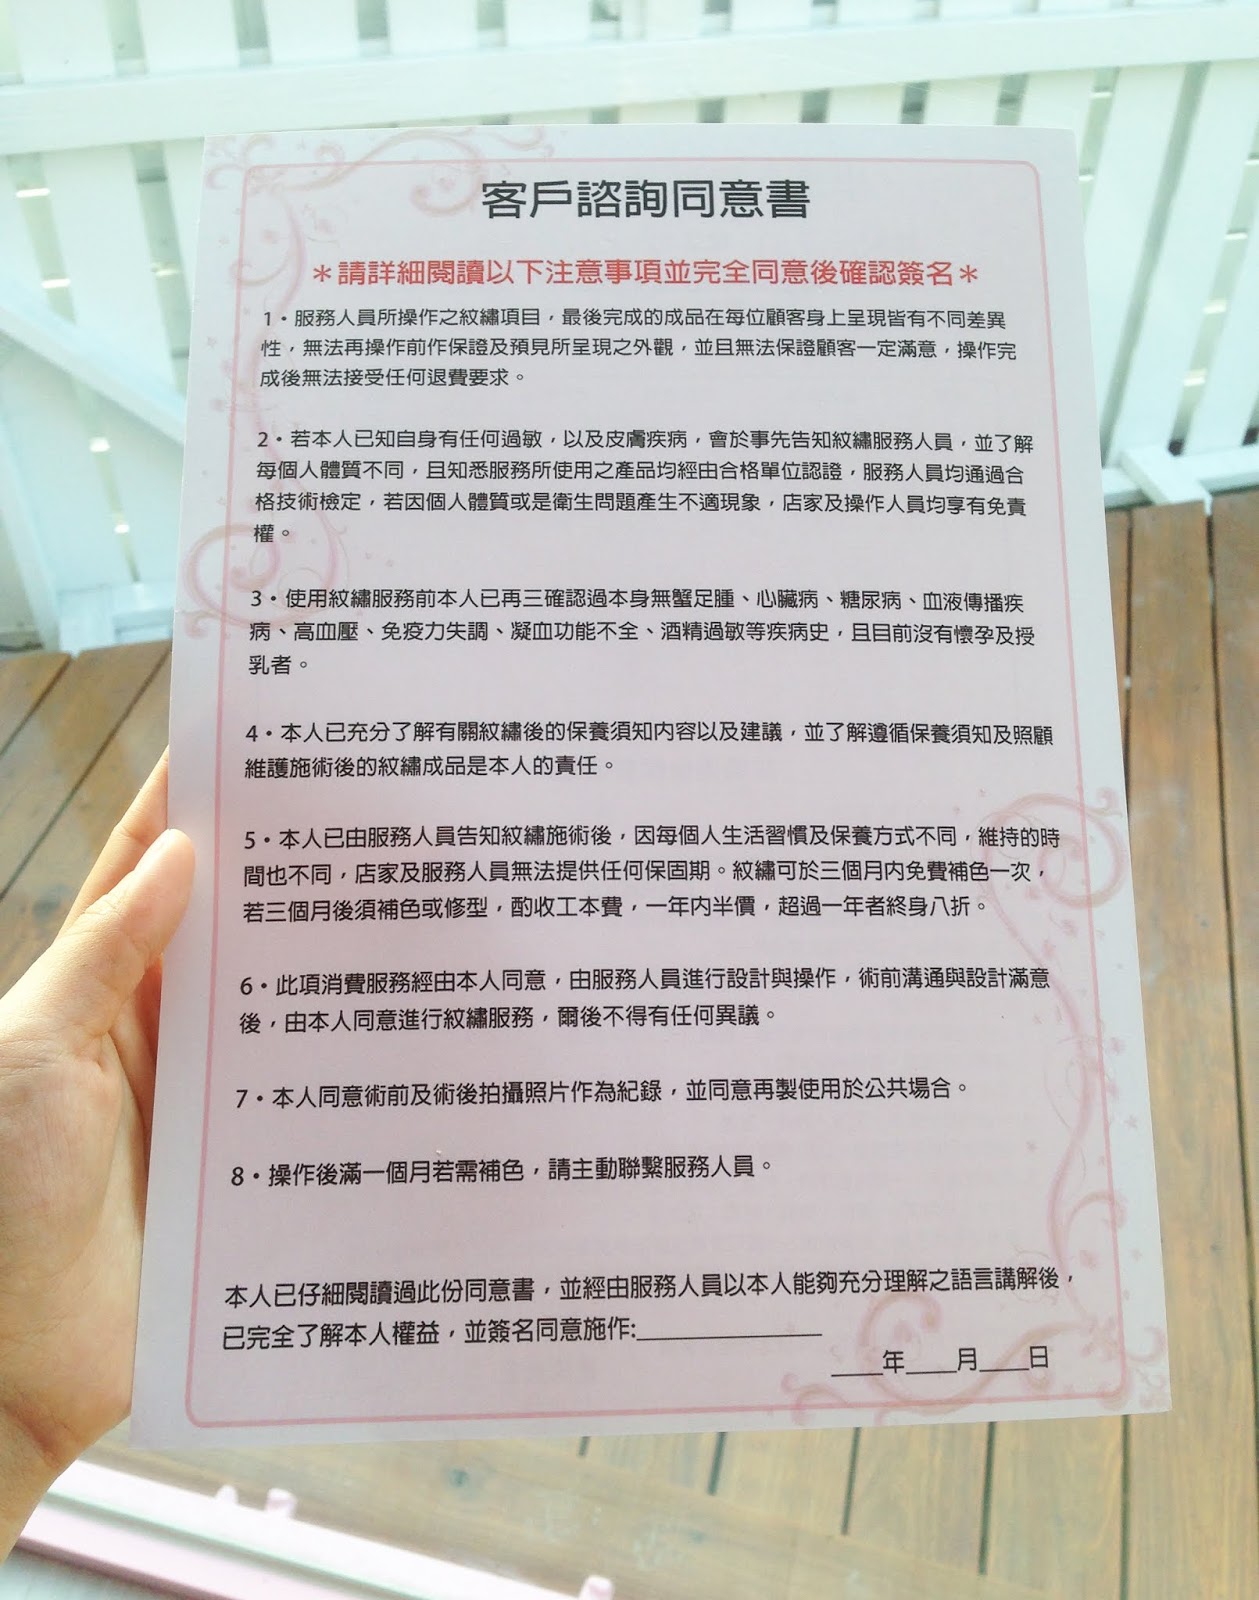 客戶諮詢同意書
＊請詳細閱讀以下注意事項並完全同意後確認簽名＊
1・服務人員所操作之紋繡項目，最後完成的成品在每位顧客身上呈現皆有不同差異
性，無法再操作前作保證及預見所呈現之外觀，並且無法保證顧客一定滿意，操作完
成後無法接受任何退費要求。
2・若本人已知自身有任何過敏，以及皮膚疾病，會於事先告知紋繡服務人員，並了解
每個人體質不同，且知悉服務所使用之產品均經由合格單位認證，服務人員均通過合
格技術檢定，若因個人體質或是衛生問題產生不適現象，店家及操作人員均享有免責
權。
3・使用紋繡服務前本人已再三確認過本身無蟹足腫、心臟病、糖尿病、血液傳播疾
病、高血壓、免疫力失調、凝血功能不全、酒精過敏等疾病史，且目前沒有懷孕及授
乳者。
4・本人已充分了解有關紋繡後的保養須知內容以及建議，並了解遵循保養須知及照顧
維護施術後的紋繡成品是本人的責任。
5・本人已由服務人員告知紋繡施術後，因每個人生活習慣及保養方式不同，維持的時
間也不同，店家及服務人員無法提供任何保固期。紋繡可於三個月內免費補色一次，
若三個月後須補色或修型，酌收工本費，一年內半價，超過一年者終身八折。
6・此項消費服務經由本人同意，由服務人員進行設計與操作，術前溝通與設計滿意
後，由本人同意進行紋繡服務，爾後不得有任何異議。
7・本人同意術前及術後拍攝照片作為紀錄，並同意再製使用於公共場合。
8・操作後滿一個月若需補色，請主動聯繫服務人員。
本人已仔細閱讀過此份同意書，並經由服務人員以本人能夠充分理解之語言講解後，
已完全了解本人權益，並簽名同意施作:______________
____年____月____日